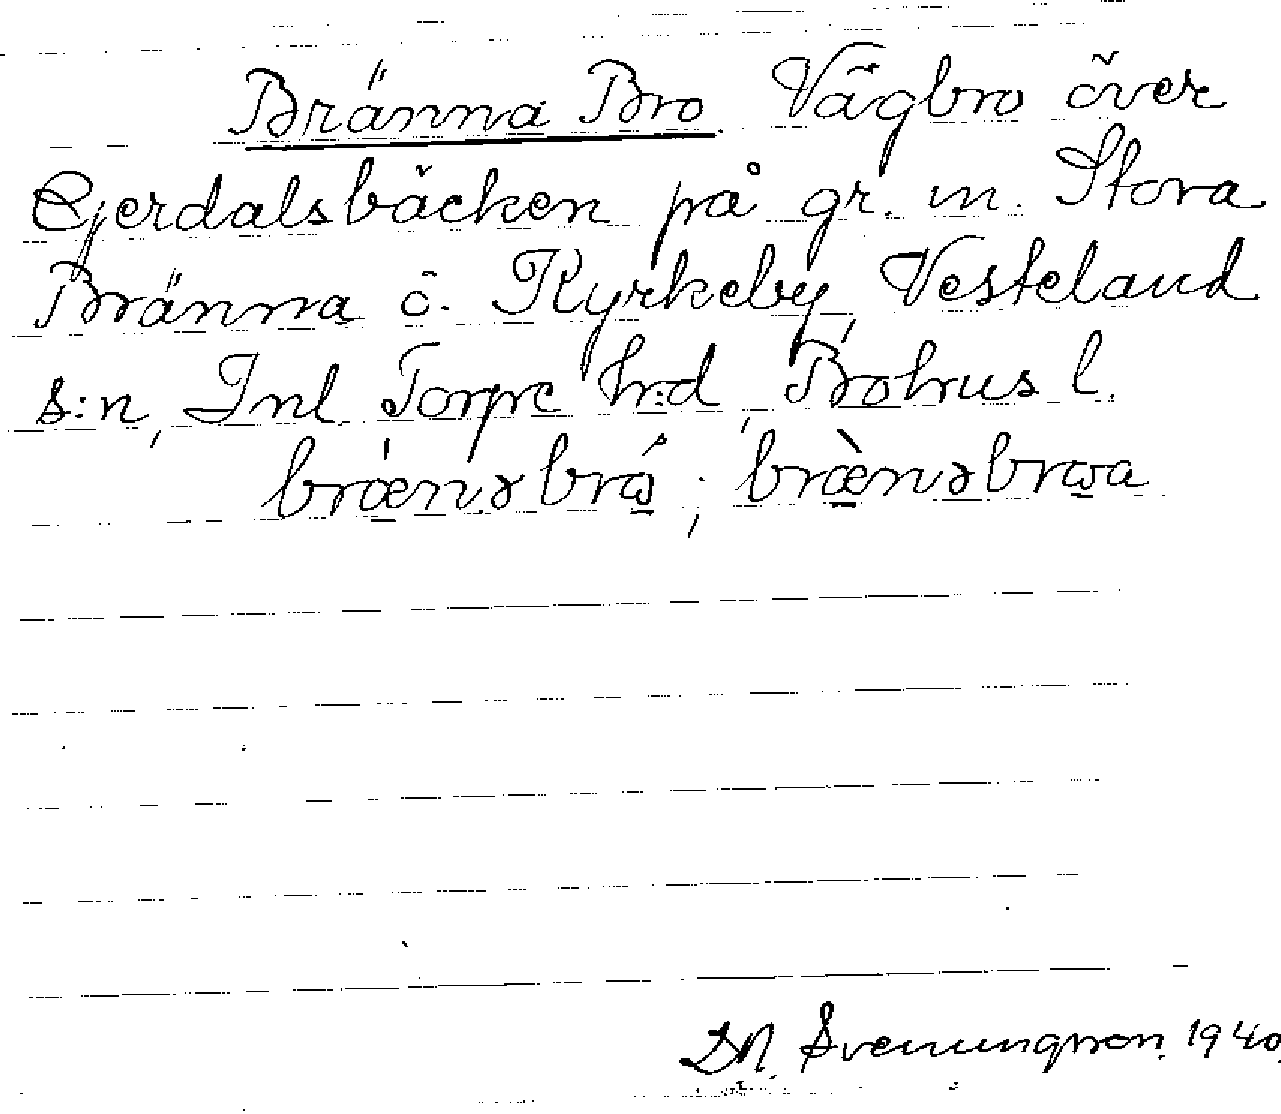 Bränna Bro. Vägbro över
Gjerdalsbäcken på gr. m. Stora
Bränna o. Kyrkeby, Vesteland
s:n, Inl. Torpe h:d, Bohus l.
brænə brω ; brænəbrωa
Svenungsson. 1940.